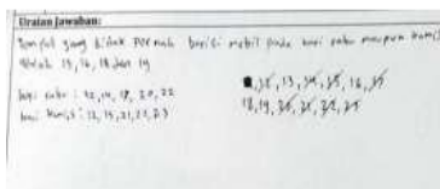 Uraian Jawaban:
Tempat yang tidak pernah berisi mobil pada hari rabu maupun kamis
adalah 13, 16, 18 dan 19
hari rabu : 12, 14, 17, 20, 22
hari kamis : 12, 15, 21, 22, 23
12, 13, 14, 15, 16, 17
18, 19, 20, 21, 22, 23